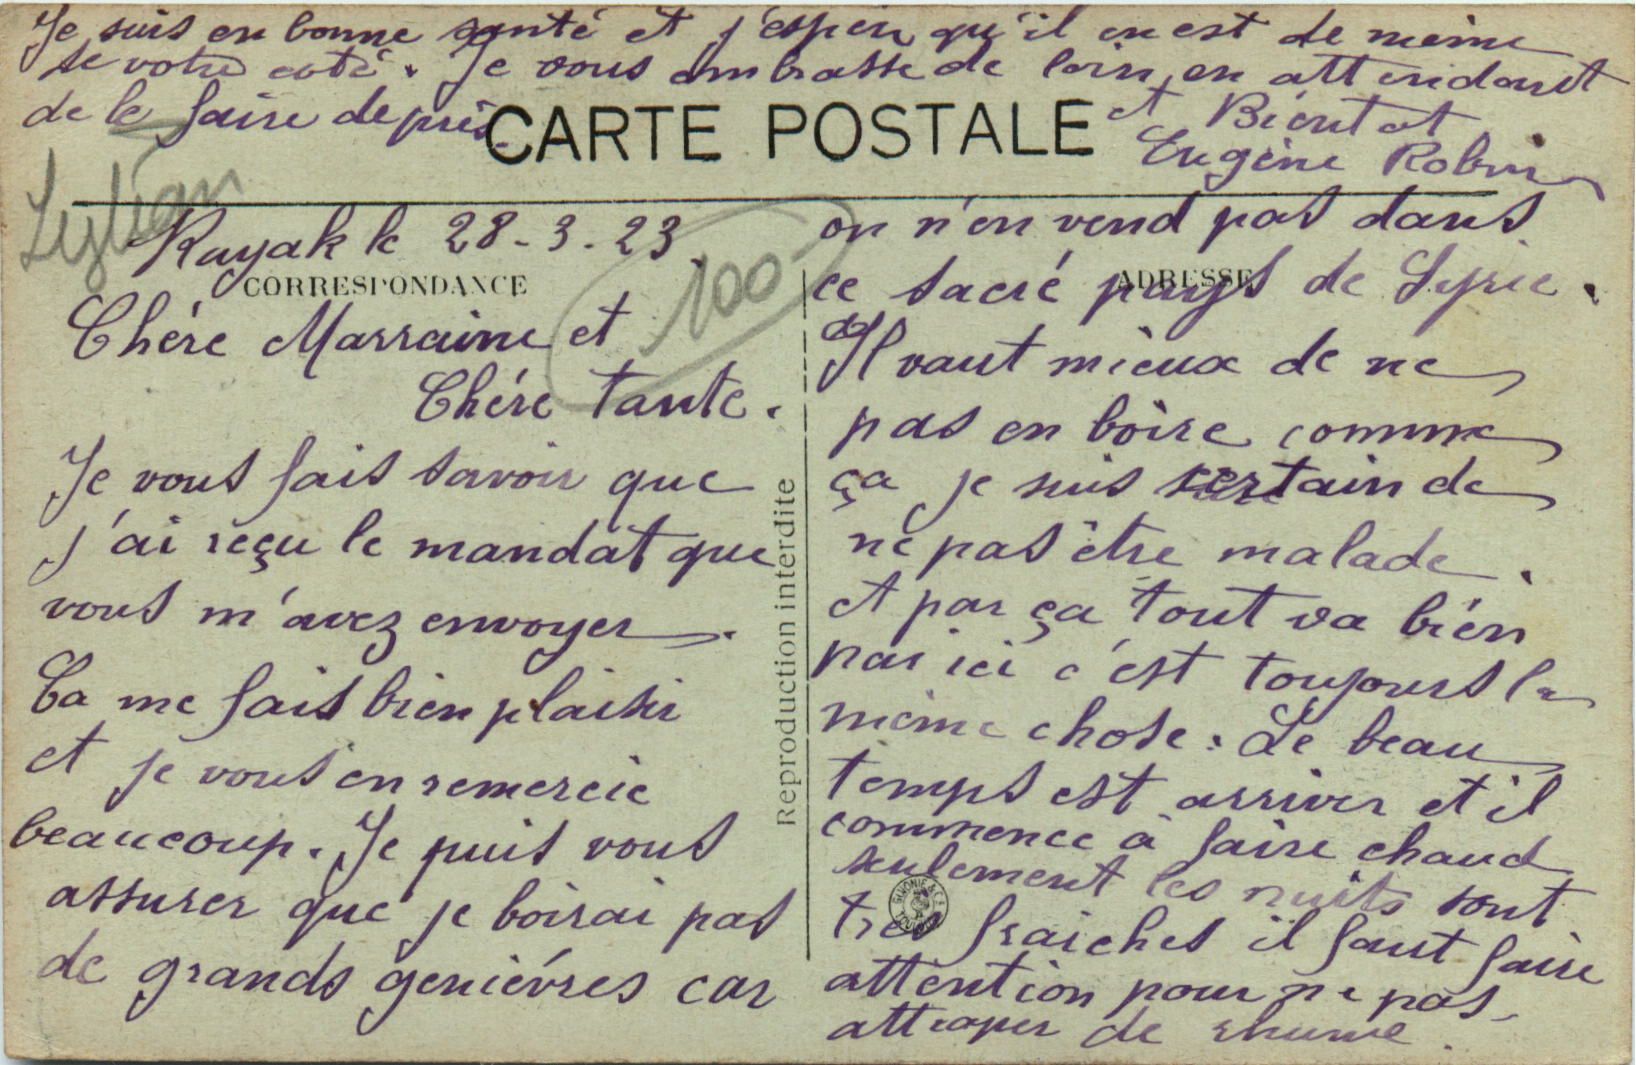 Je suis en bonne santé et j'espère qu'il en est de même
de votre coté. Je vous embrasse de loin, en attendant
de le faire de près.
et Biéntot
Eugène Robin
CARTE POSTALE
Rayak le 28-3-23
100
CORRESPONDANCE
Chére Marraine et
Chére tante.
Je vous fais savoir que
j'ai reçu le mandat que
vous m'avez envoyer.
Ca me fais bien plaisir
et je vous en remercie
beaucoup. Je puis vous
assurer que je boirai pas
de grands geniévres car
Reproduction interdite
ADRESSE
on n'en vend pas dans
ce sacré pays de Syrie.
Il vaut mieux de ne
pas en boire comme
ça je suis certain de
ne pas être malade.
et par ça tout va bien
par ici c'est toujours la
même chose. Le beau
temps est arriver et il
commence à faire chaud
seulement les nuits sont
tres fraiches il faut faire
attention pour ne pas
attraper de rhume.